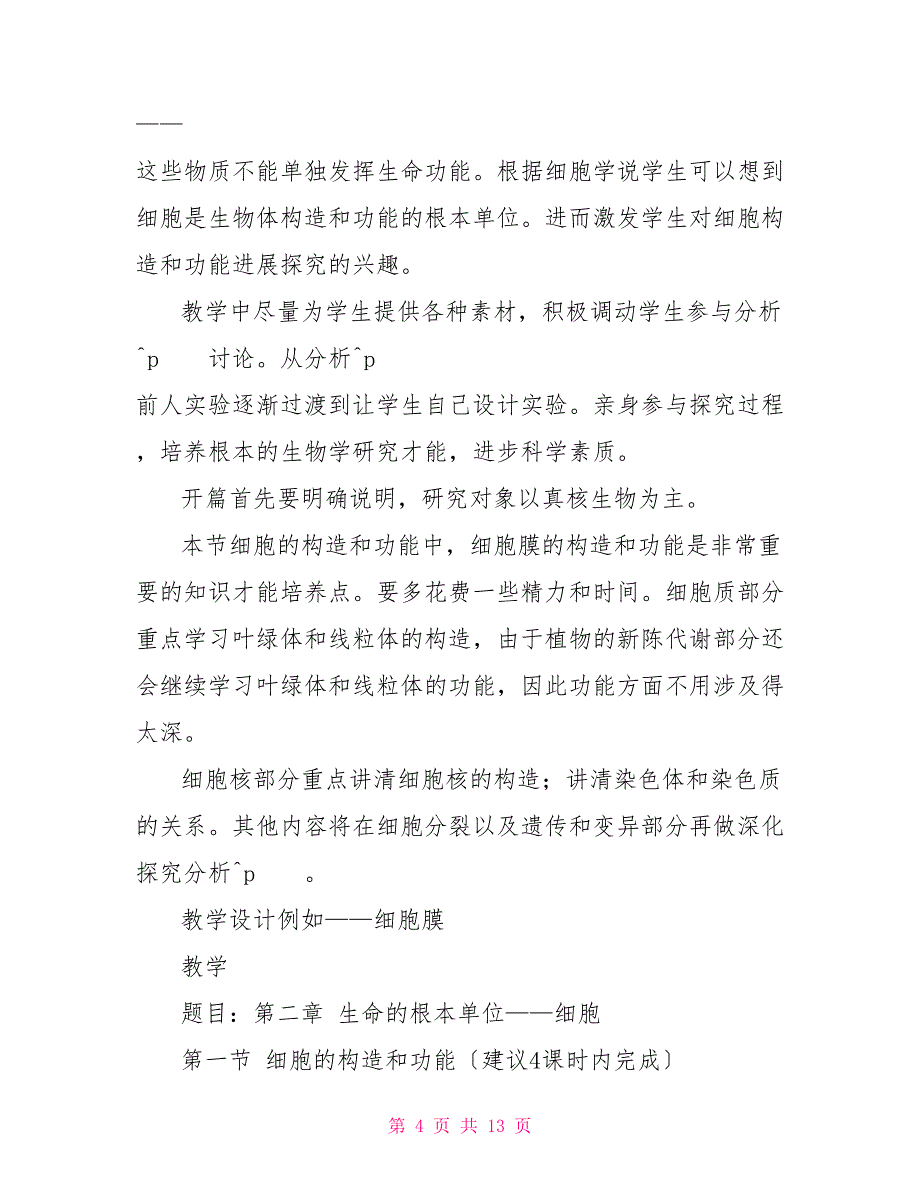 ——
这些物质不能单独发挥生命功能。根据细胞学说学生可以想到
细胞是生物体构造和功能的根本单位。进而激发学生对细胞构
造和功能进展探究的兴趣。
教学中尽量为学生提供各种素材，积极调动学生参与分析
^p 讨论。从分析^p
前人实验逐渐过渡到让学生自己设计实验。亲身参与探究过程
，培养根本的生物学研究才能，进步科学素质。
开篇首先要明确说明，研究对象以真核生物为主。
本节细胞的构造和功能中，细胞膜的构造和功能是非常重
要的知识才能培养点。要多花费一些精力和时间。细胞质部分
重点学习叶绿体和线粒体的构造，由于植物的新陈代谢部分还
会继续学习叶绿体和线粒体的功能，因此功能方面不用涉及得
太深。
细胞核部分重点讲清细胞核的构造；讲清染色体和染色质
的关系。其他内容将在细胞分裂以及遗传和变异部分再做深化
探究分析^p 。
教学设计例如——细胞膜
教学
题目：第二章 生命的根本单位——细胞
第一节 细胞的构造和功能〔建议4课时内完成〕
第 4 页 共 13 页